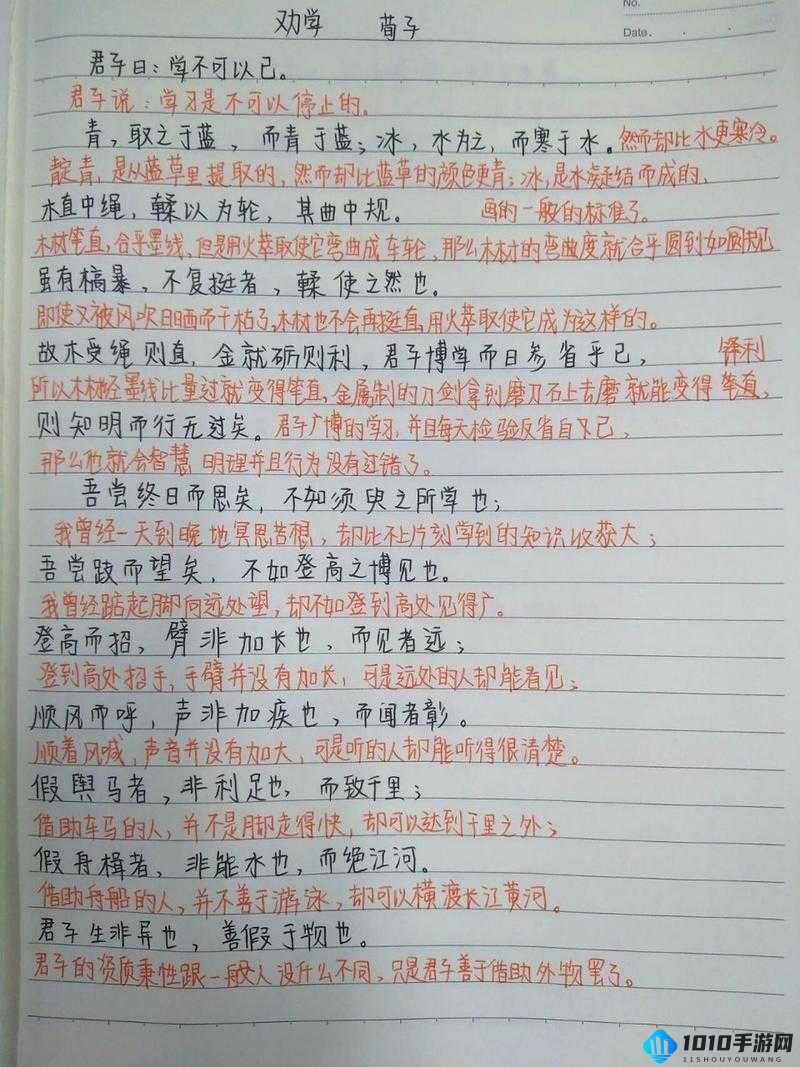 No.
Date.
劝学 荀子
君子曰：学不可以已。
君子说：学习是不可以停止的。
青，取之于蓝，而青于蓝；冰，水为之，而寒于水。然而却比水更寒冷。
靛青，是从蓝草里提取的，然而却比蓝草的颜色更青；冰，是水凝结而成的，
木直中绳，輮以为轮，其曲中规。 画的一般的标准了。
木材笔直，合乎墨线，但是用火萃取使它弯曲成车轮，那么木材的弯曲度就合乎圆到如圆规
虽有槁暴，不复挺者，輮使之然也。
即使又被风吹日晒而干枯了，木材也不会再挺直，用火萃取使它成为这样的。
故木受绳则直，金就砺则利，君子博学而日参省乎己， 锋利
所以木材经墨线比量过就变得笔直，金属制的刀剑拿到磨刀石上去磨就能变得笔直，
则知明而行无过矣。君子广博的学习，并且每天检验反省自己，
那么他就会智慧明理并且行为没有过错了。
吾尝终日而思矣，不如须臾之所学也；
我曾经一天到晚地冥思苦想，却比不上片刻学到的知识收获大；
吾尝跂而望矣，不如登高之博见也。
我曾经踮起脚向远处望，却不如登到高处见得广。
登高而招，臂非加长也，而见者远；
登到高处招手，手臂并没有加长，可是远处的人却能看见；
顺风而呼，声非加疾也，而闻者彰。
顺着风喊，声音并没有加大，可是听的人却能听得很清楚。
假舆马者，非利足也，而致千里；
借助车马的人，并不是脚走得快，却可以达到千里之外；
假舟楫者，非能水也，而绝江河。
借助舟船的人，并不善于游泳，却可以横渡长江黄河。
君子生非异也，善假于物也。
君子的资质秉性跟一般人没什么不同，只是君子善于借助外物罢了。
1010手游网
11SHOUYOUWANG